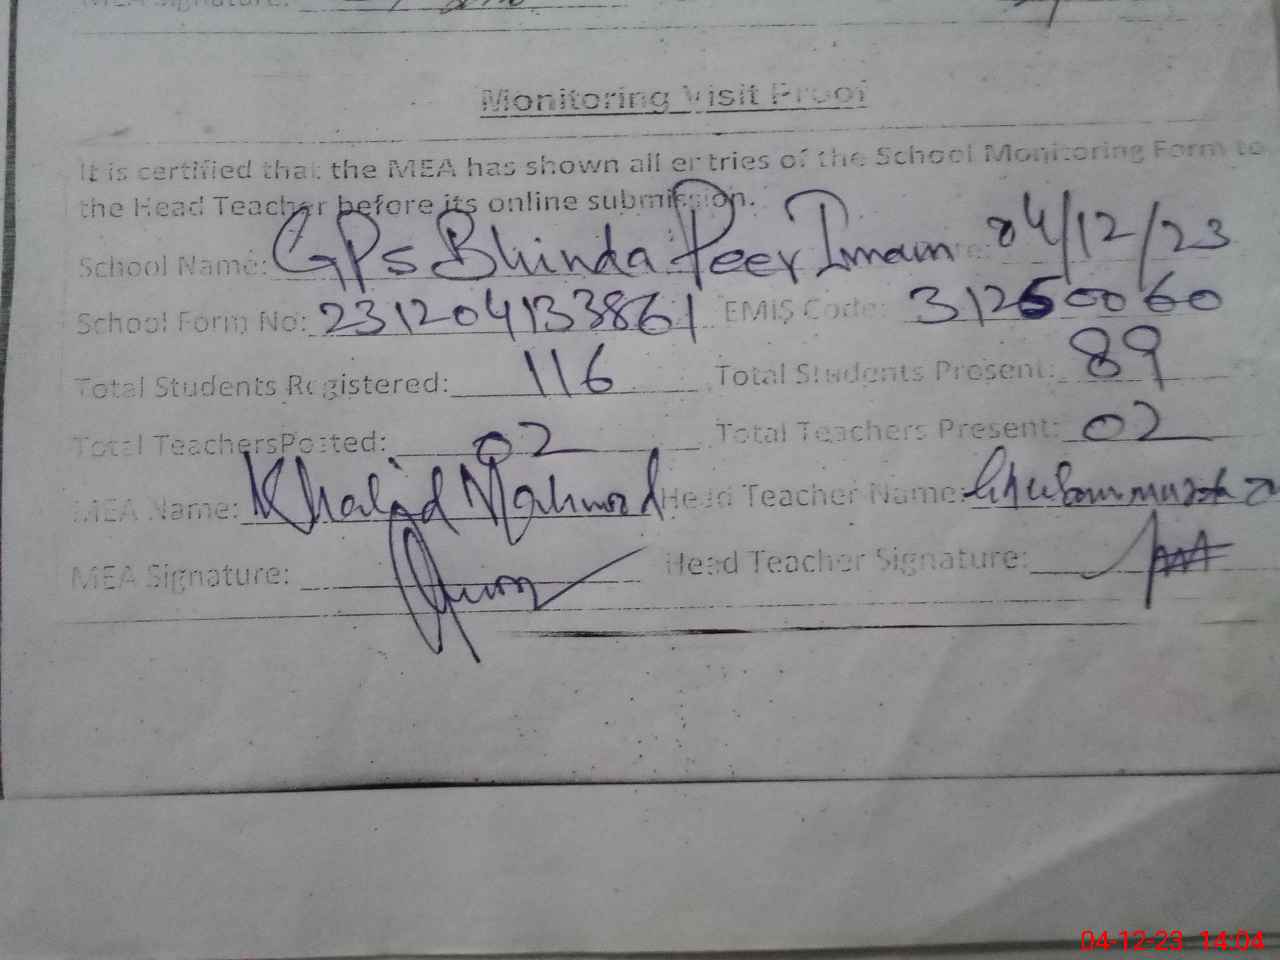 MEA Signature:
Monitoring Visit Proof
It is certified that the MEA has shown all entries of the School Monitoring Form to
the Head Teacher before its online submission.
School Name: GPs Bhinda Peer Imam Date: 04/12/23
School Form No: 231204133861 EMIS Code: 31250060
Total Students Registered: 116 Total Students Present: 89
Total TeachersPosted: 02 Total Teachers Present: 02
MEA Name: Khalid Mahmood Head Teacher Name: Ghulam murtaza
MEA Signature: Head Teacher Signature:
04-12-23 14:04